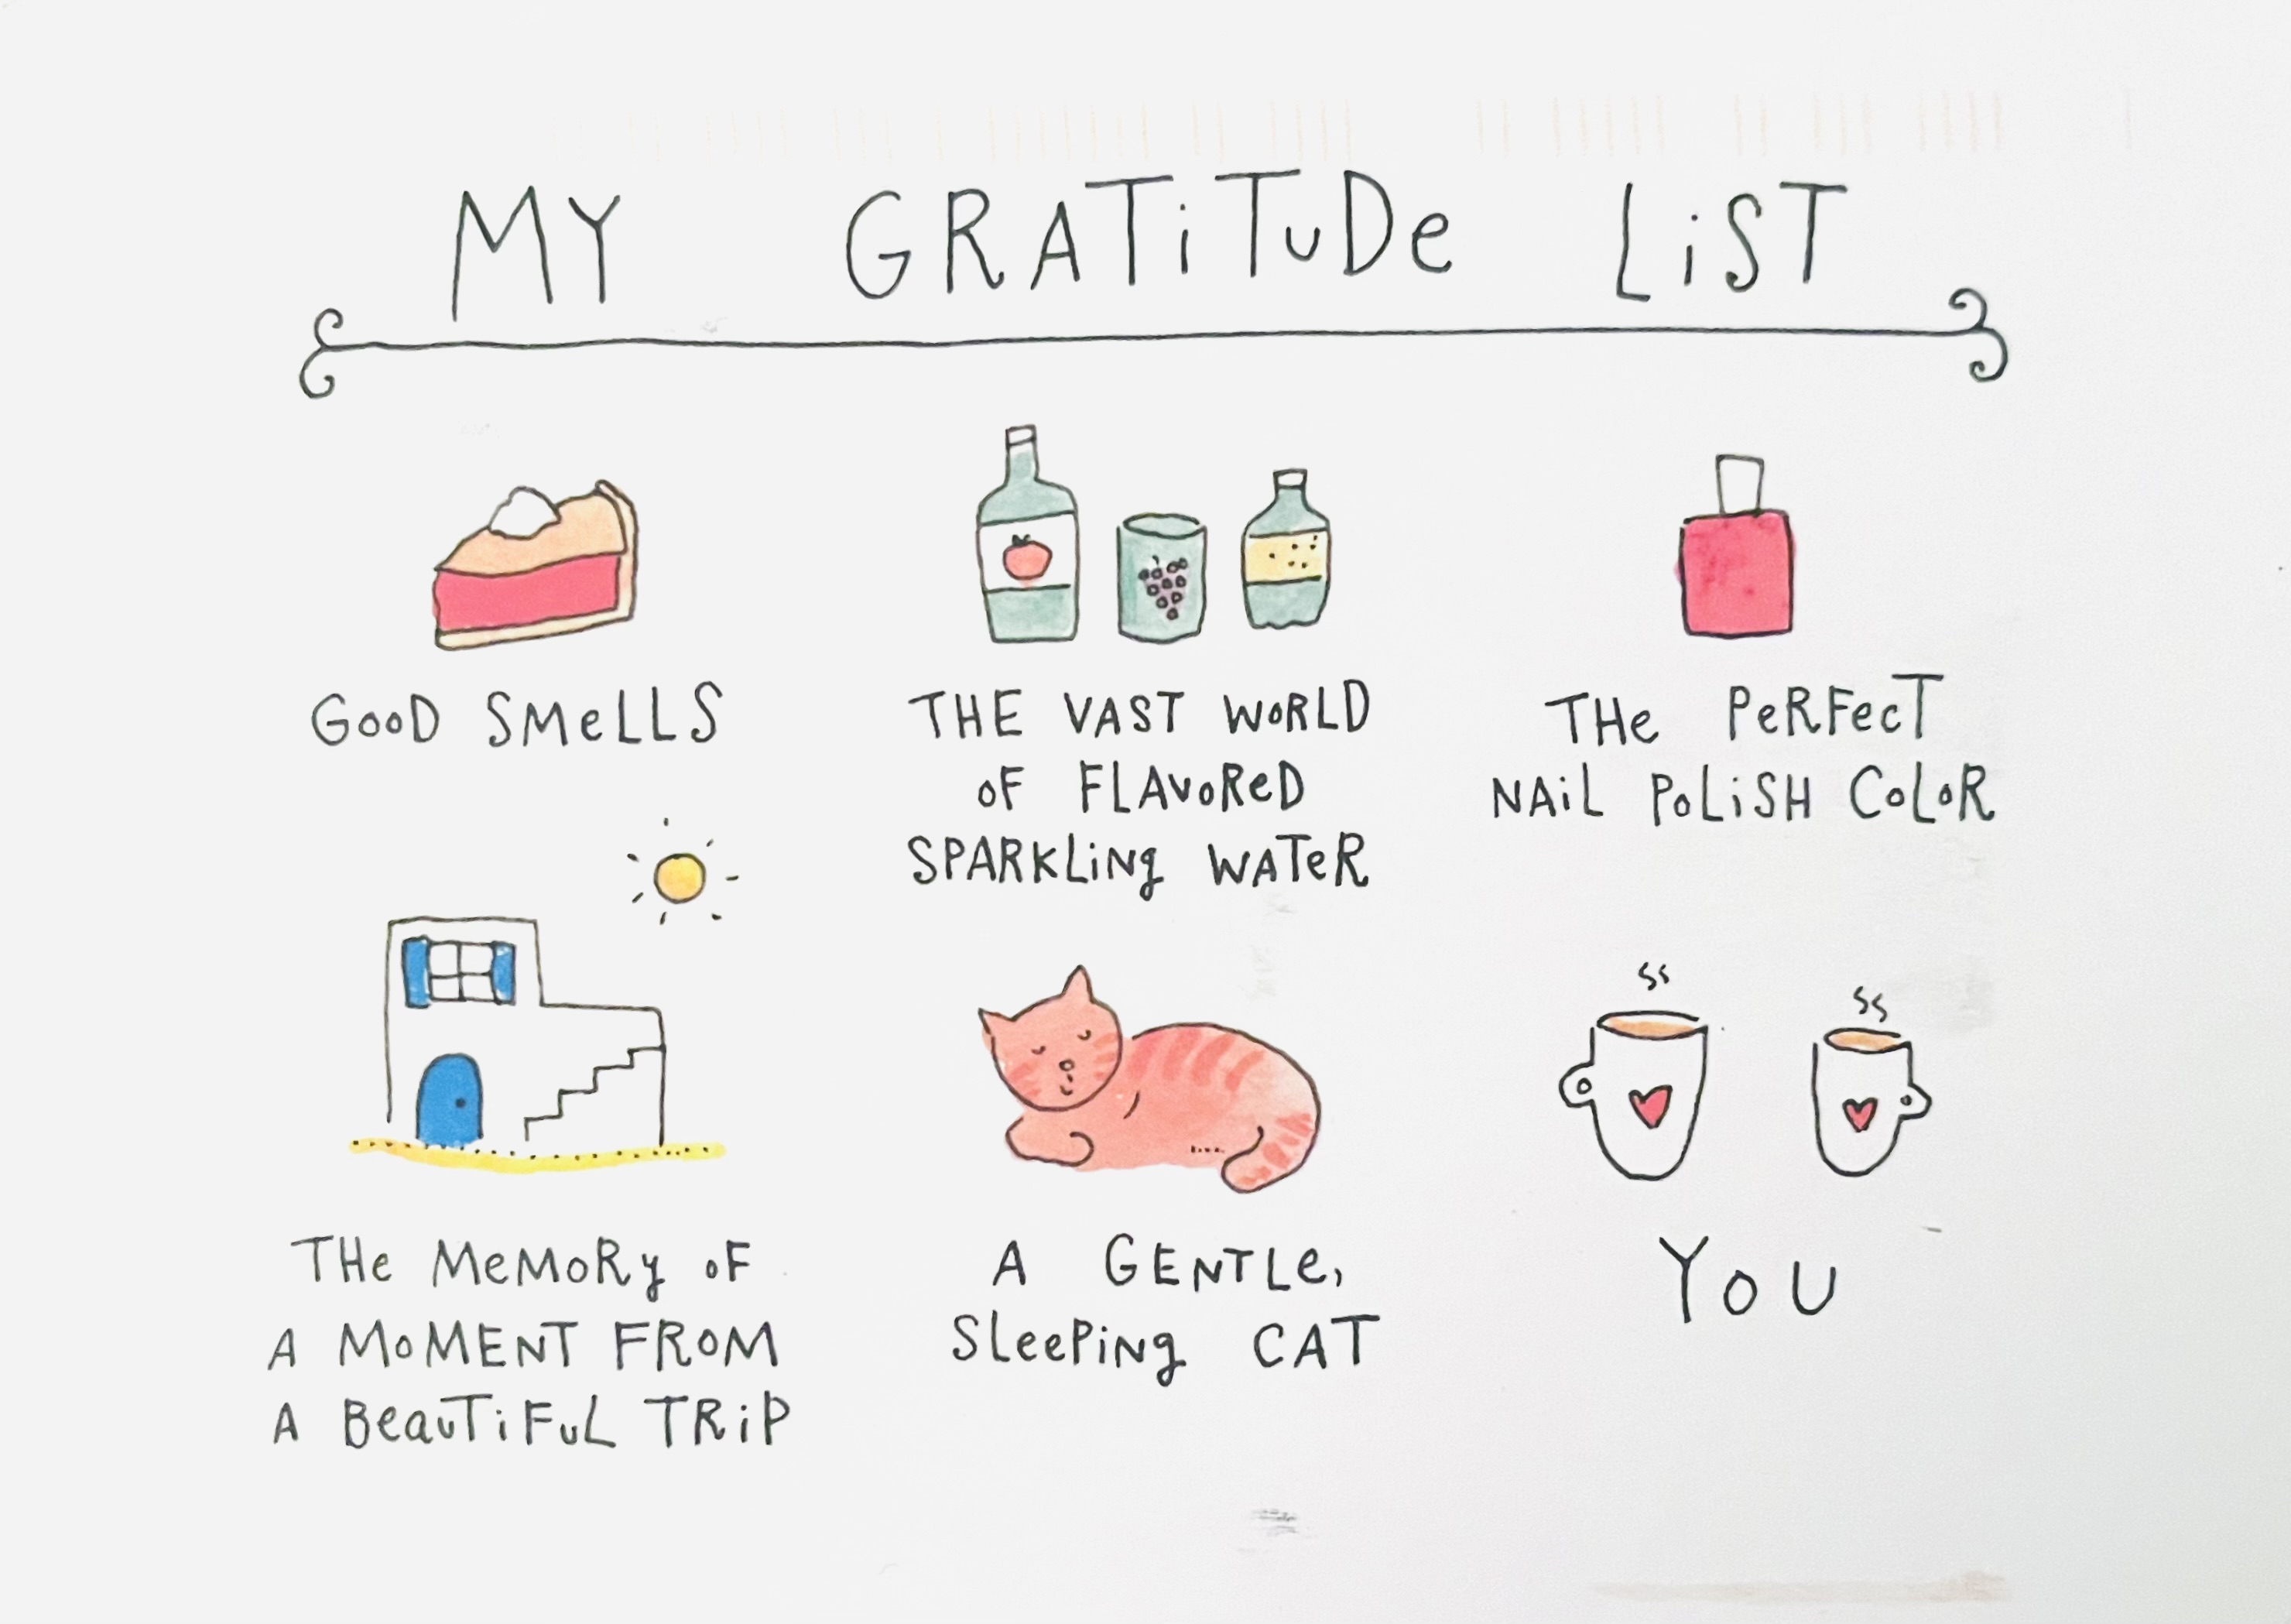 MY GRATiTuDe LiST
GooD SMeLLS
THE VAST WoRLD
oF FLAvoReD
SPARKLiNg WATeR
THe PeRFecT
NAiL PoLiSH CoLoR
THe MeMoRy oF
A MoMENT FRoM
A BeauTiFuL TRiP
A GENTLe,
SleePiNg CAT
YoU